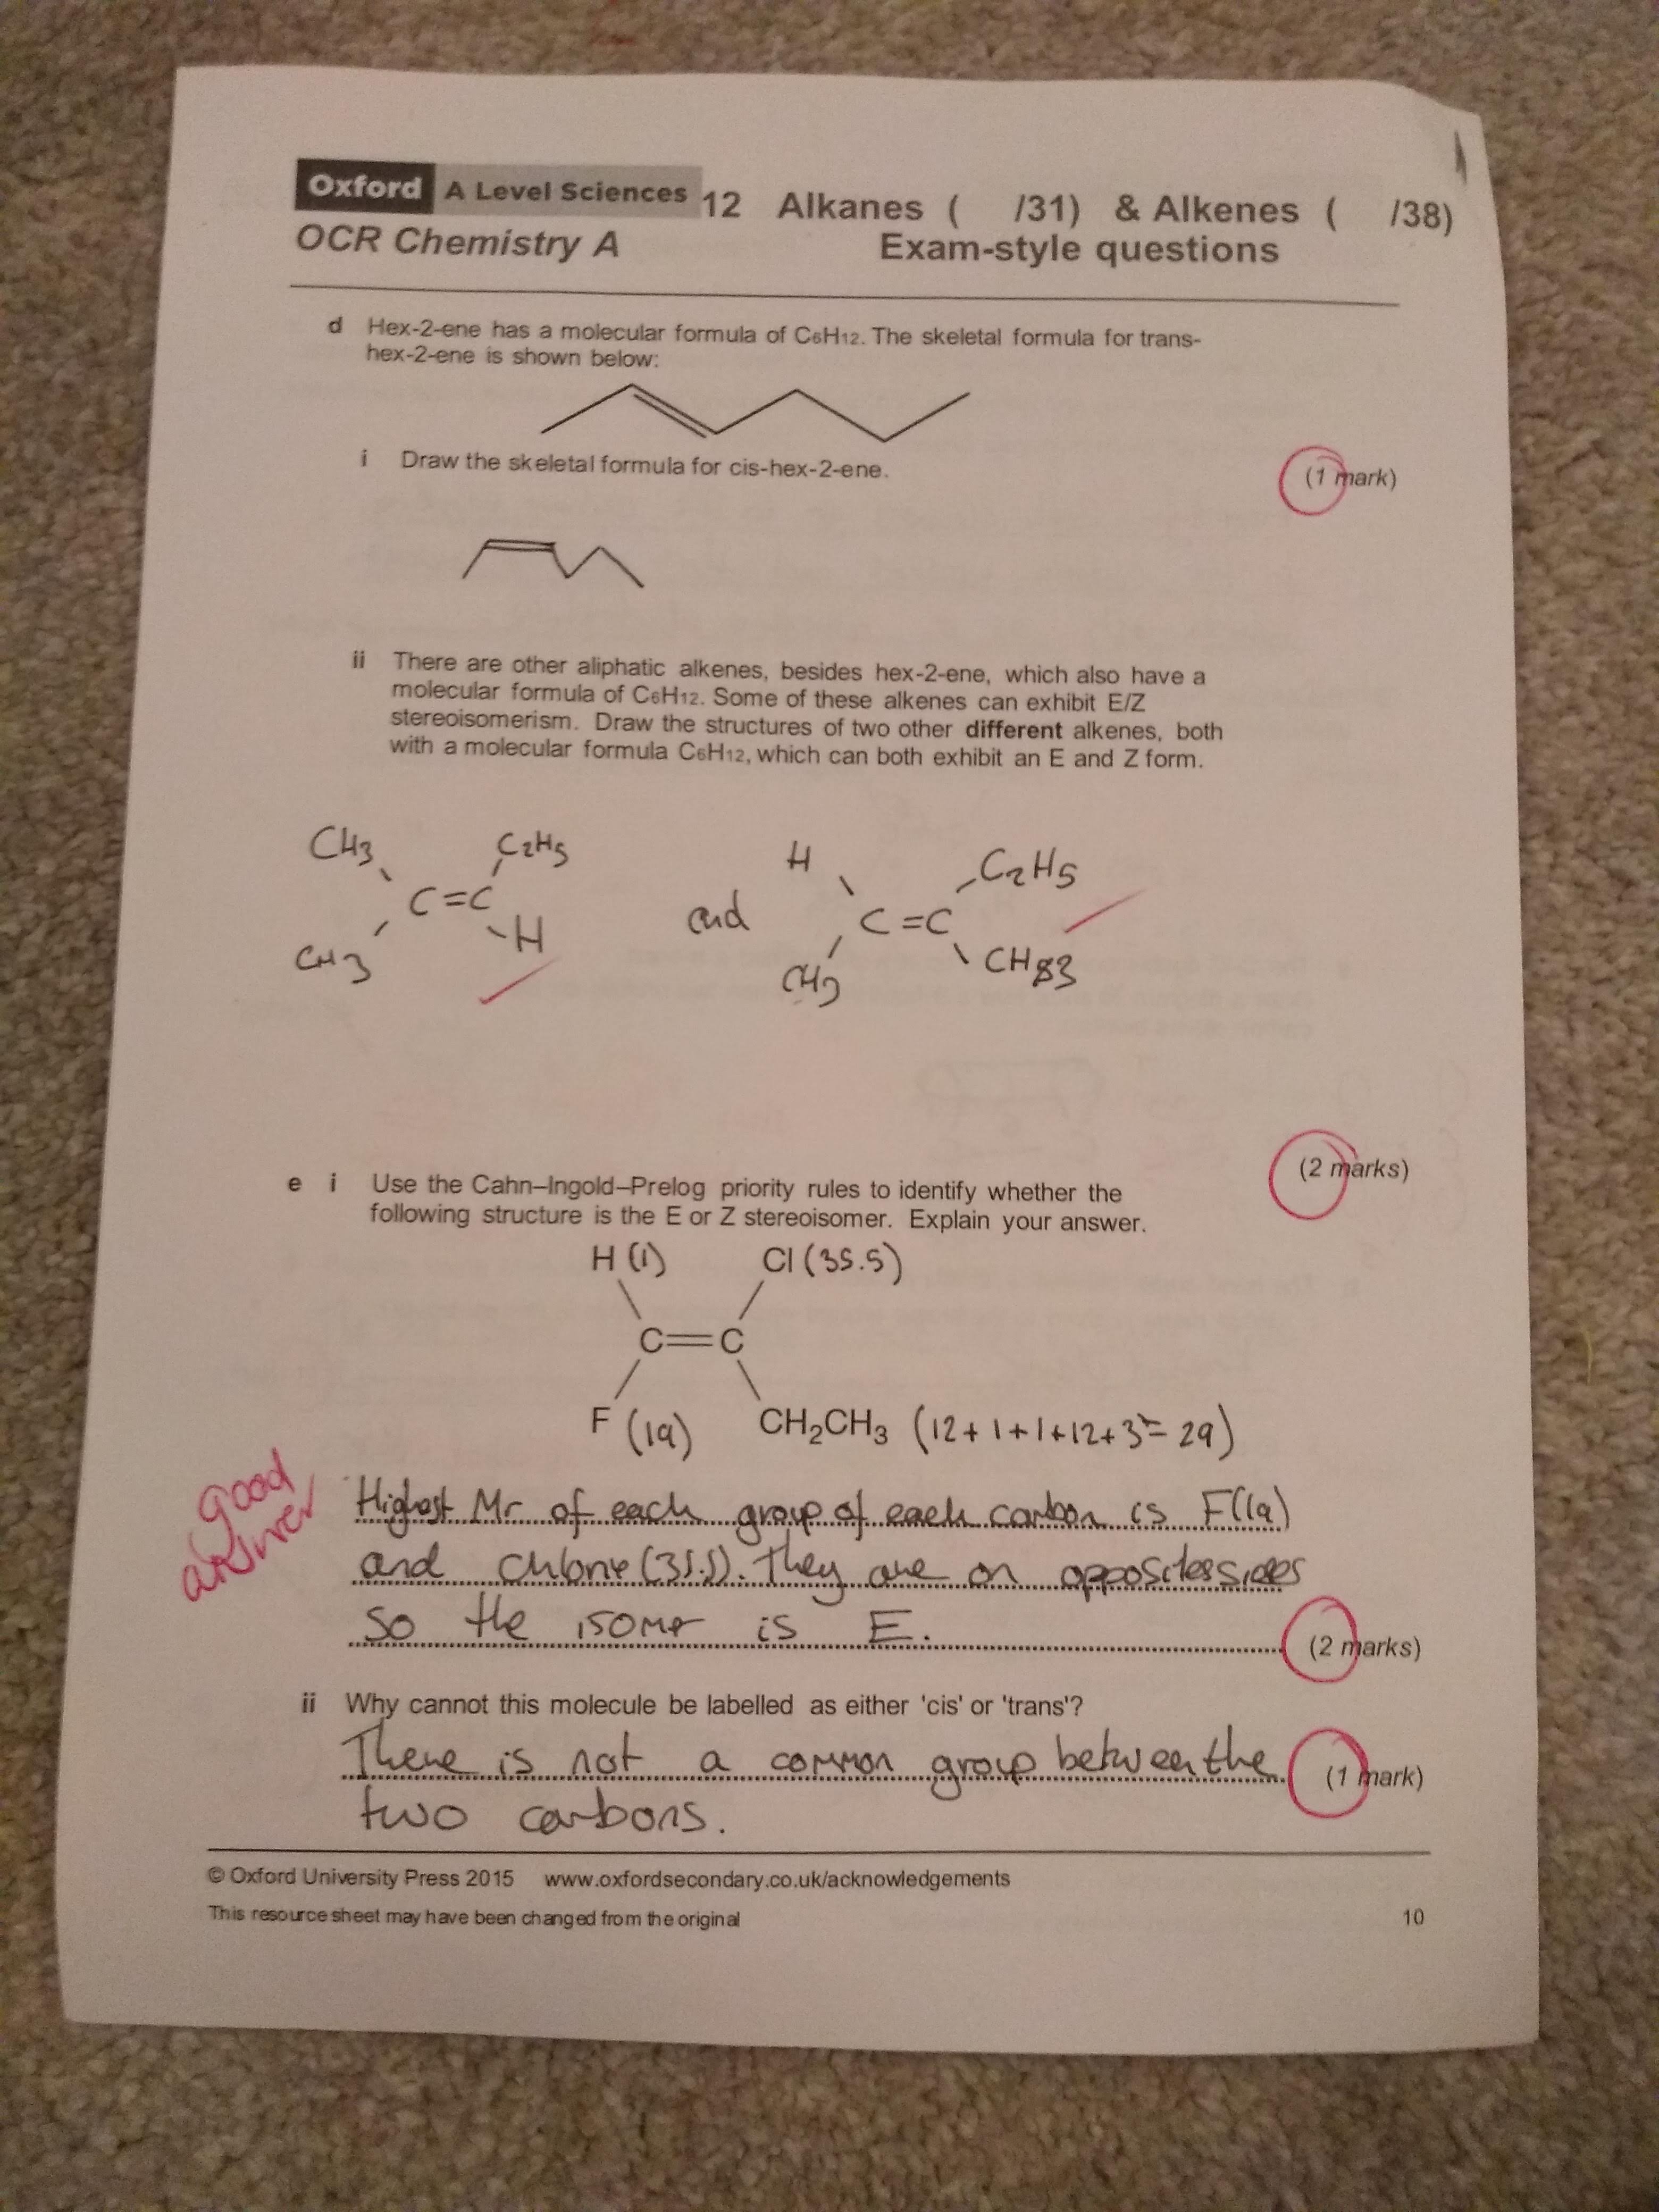 Oxford A Level Sciences 12 Alkanes ( /31) & Alkenes ( /38)
OCR Chemistry A Exam-style questions
d Hex-2-ene has a molecular formula of C₆H₁₂. The skeletal formula for trans-
hex-2-ene is shown below:
i Draw the skeletal formula for cis-hex-2-ene. (1 mark)
ii There are other aliphatic alkenes, besides hex-2-ene, which also have a
molecular formula of C₆H₁₂. Some of these alkenes can exhibit E/Z
stereoisomerism. Draw the structures of two other different alkenes, both
with a molecular formula C₆H₁₂, which can both exhibit an E and Z form.
CH3 C2H5 H C2H5
C=C and C=C
CH3 H CH3 CH3
(2 marks)
e i Use the Cahn–Ingold–Prelog priority rules to identify whether the
following structure is the E or Z stereoisomer. Explain your answer.
H (1) Cl (35.5)
C=C
F (19) CH₂CH₃ (12+1+1+12+3=29)
good
answer
Highest Mr of each group of each carbon is F(19)
and chlorie (35.5). They are on oppositessides
so the isomer is E. (2 marks)
ii Why cannot this molecule be labelled as either 'cis' or 'trans'?
There is not a common group between the (1 mark)
two carbons.
© Oxford University Press 2015 www.oxfordsecondary.co.uk/acknowledgements
This resource sheet may have been changed from the original 10